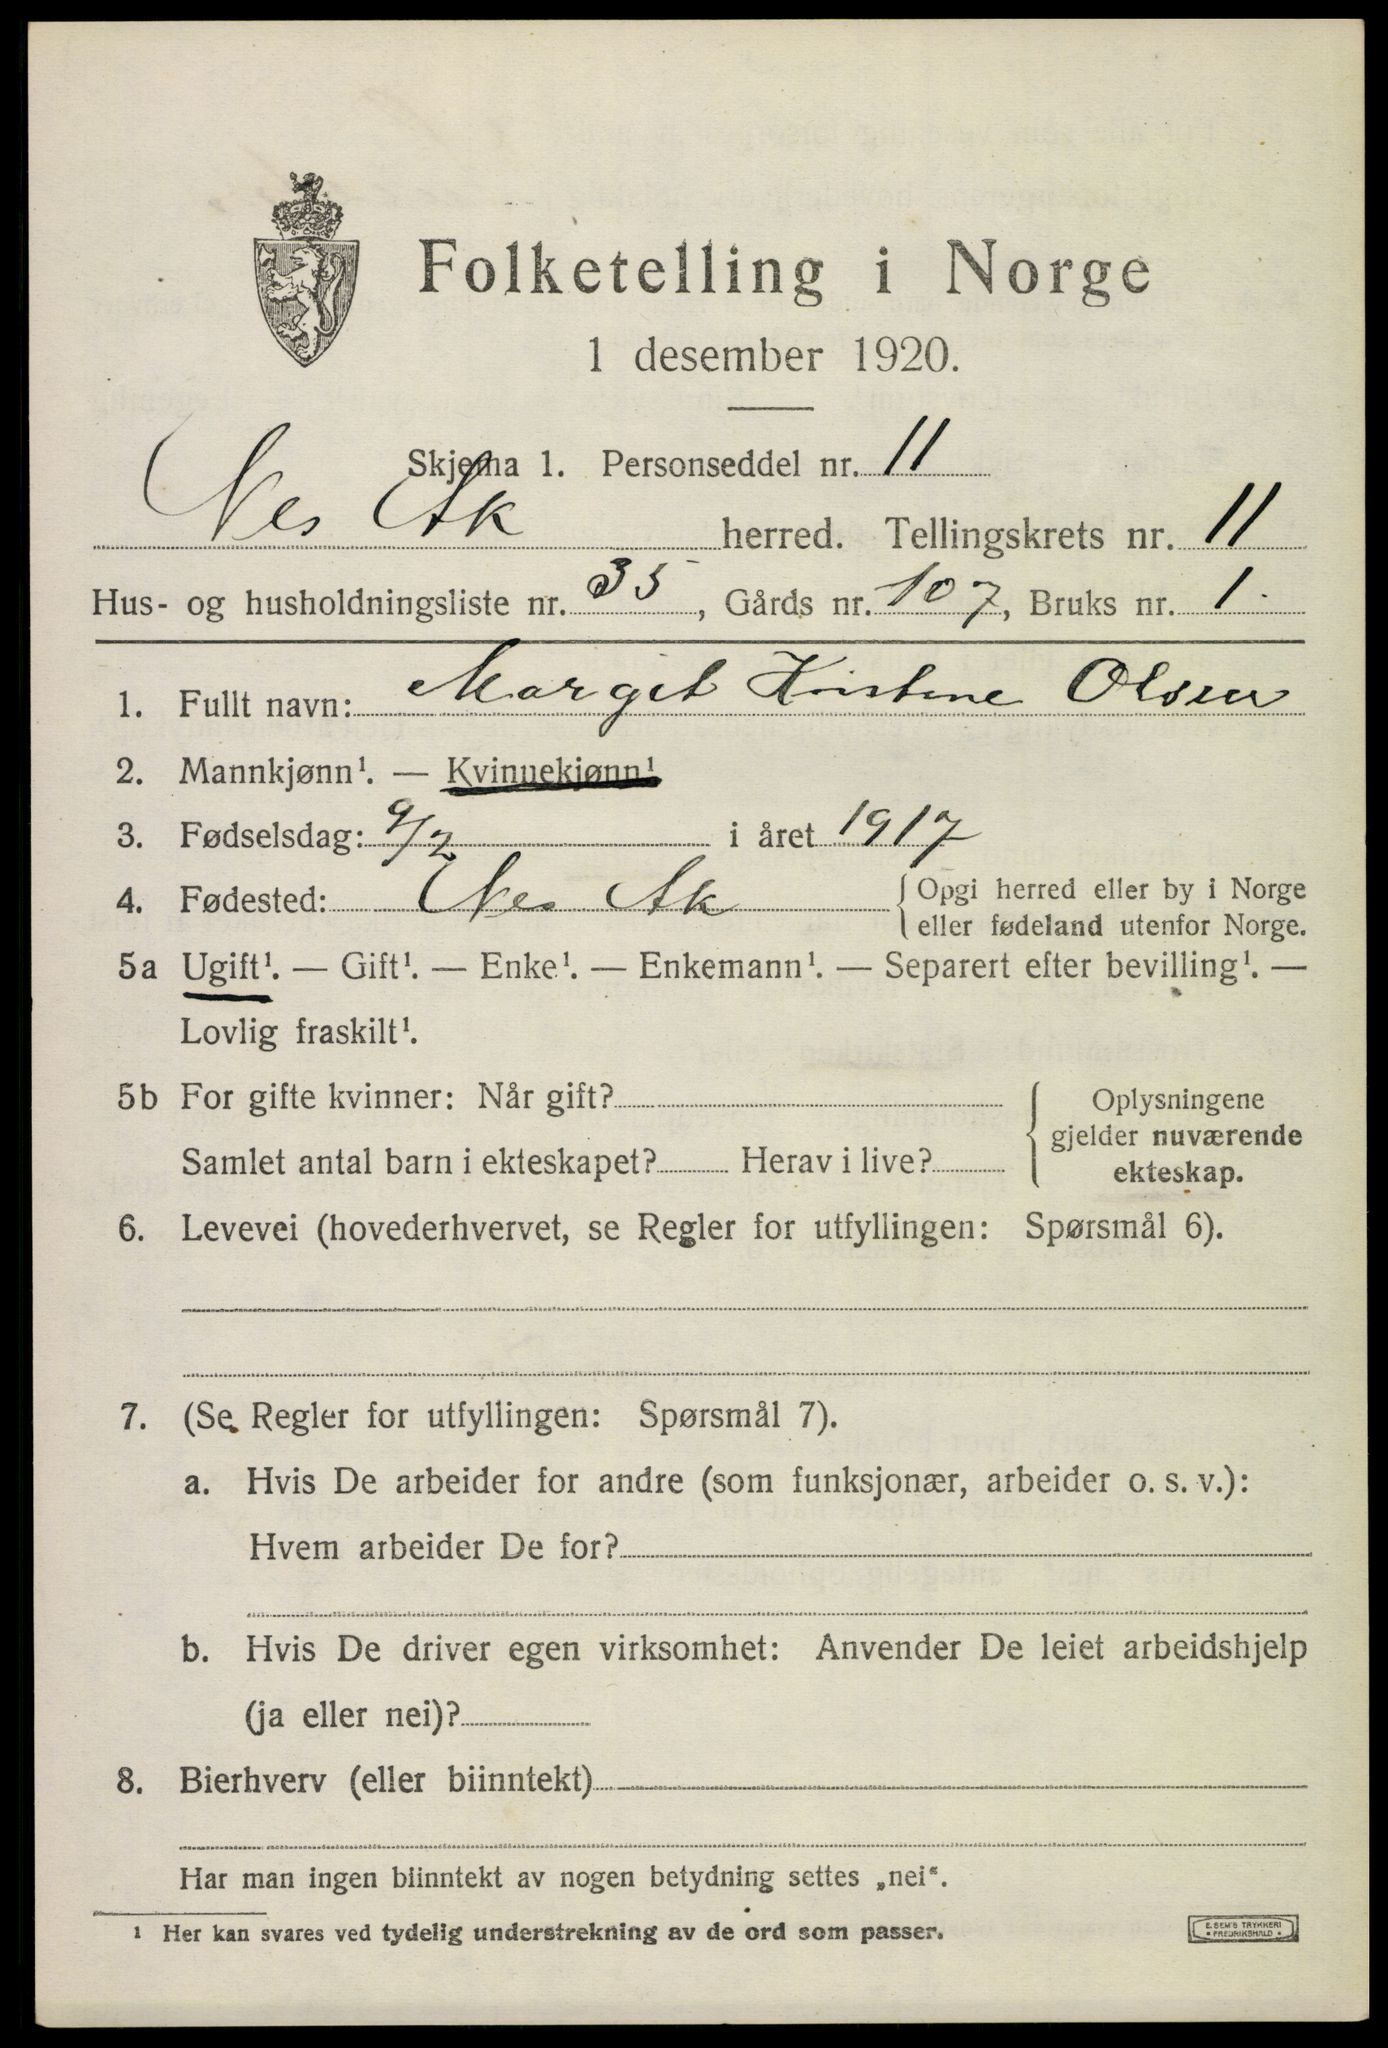 Folketelling i Norge
1 desember 1920.
Skjema 1. Personseddel nr. 11
Nes Ak herred. Tellingskrets nr. 11
Hus- og husholdningsliste nr. 35, Gårds nr. 107, Bruks nr. 1.
1. Fullt navn: Margit Kristine Olsen
2. Mannkjønn¹. — Kvinnekjønn¹
3. Fødselsdag: 9/2 i året 1917
4. Fødested: Nes Ak { Opgi herred eller by i Norge
eller fødeland utenfor Norge.
5a Ugift¹. — Gift¹. — Enke¹. — Enkemann¹. — Separert efter bevilling¹. —
Lovlig fraskilt¹.
5b For gifte kvinner: Når gift?
Samlet antal barn i ekteskapet? Herav i live?
Oplysningene
gjelder nuværende
ekteskap.
6. Levevei (hovederhvervet, se Regler for utfyllingen: Spørsmål 6).
7. (Se Regler for utfyllingen: Spørsmål 7).
a. Hvis De arbeider for andre (som funksjonær, arbeider o. s. v.):
Hvem arbeider De for?
b. Hvis De driver egen virksomhet: Anvender De leiet arbeidshjelp
(ja eller nei)?
8. Bierhverv (eller biinntekt)
Har man ingen biinntekt av nogen betydning settes „nei“.
1 Her kan svares ved tydelig understrekning av de ord som passer.
E. SEM'S TRYKKERI
• FREDRIKSHALD •